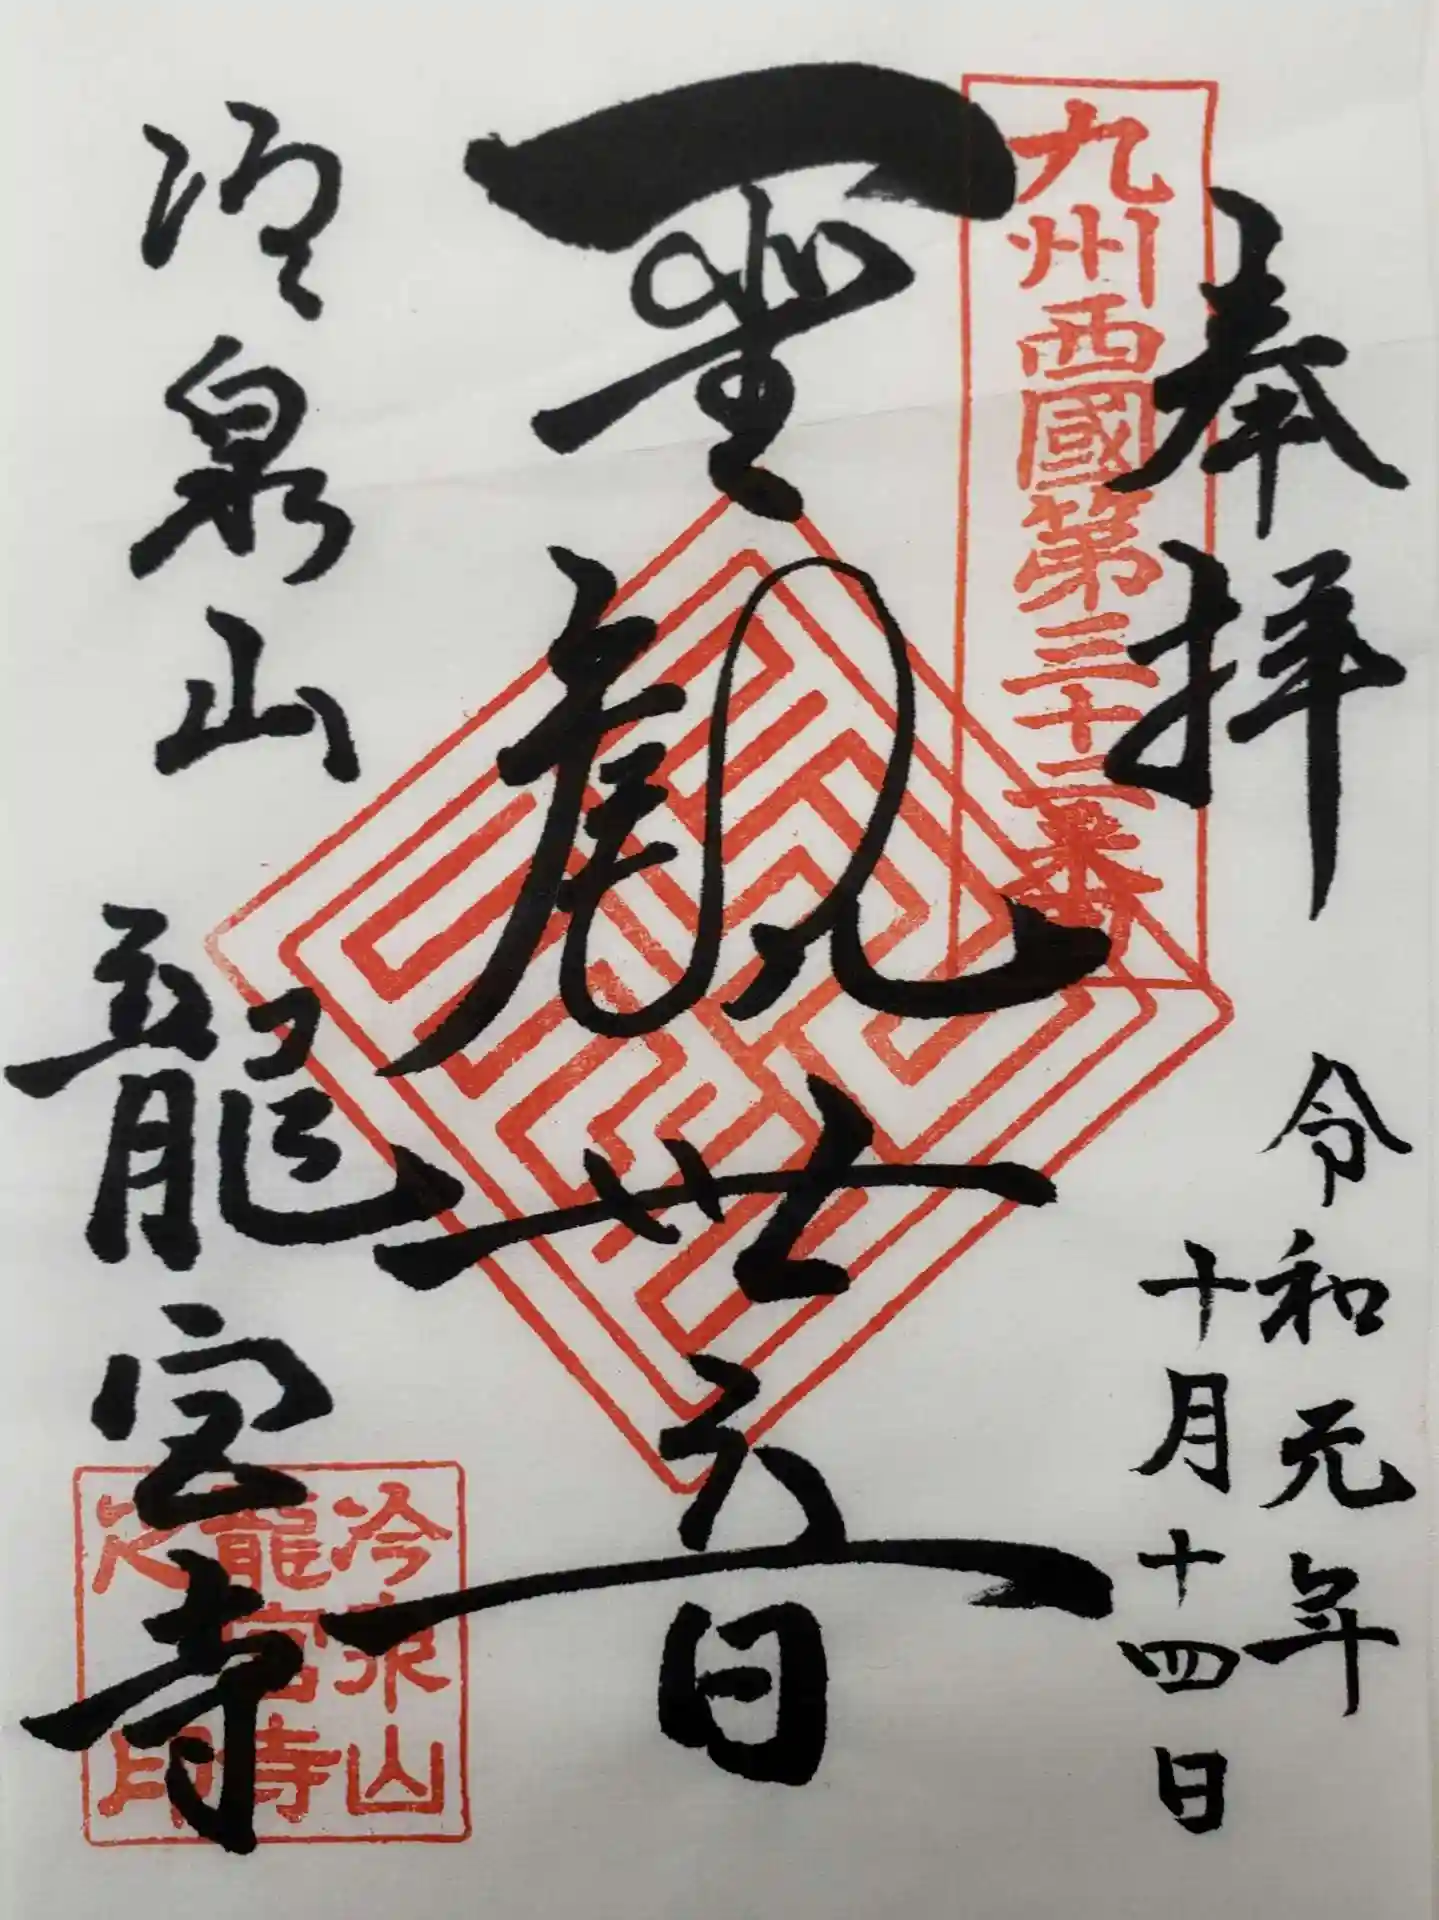 九州西國第三十二番
奉拝
令和元年
十月十四日
聖観世音
冷泉山
龍宮寺
冷泉山
龍宮寺
之印